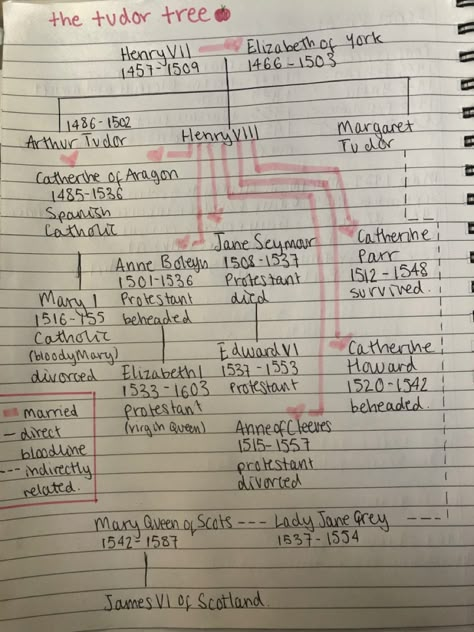 the tudor tree
Henry VII
1457-1509
Elizabeth of York
1466-1503
1486-1502
Arthur Tudor
Henry VIII
Margaret
Tudor
Catherine of Aragon
1485-1536
Spanish
Catholic
Anne Boleyn
1501-1536
Protestant
beheaded
Jane Seymour
1508-1537
Protestant
died
Catherine
Parr
1512-1548
survived.
Mary I
1516-155
Catholic
(bloody Mary)
divorced
Elizabeth I
1533-1603
protestant
(virgin Queen)
Edward VI
1537-1553
Protestant
Catherine
Howard
1520-1542
beheaded.
Anne of Cleeves
1515-1557
protestant
divorced
married
— direct
bloodline
--- indirectly
related.
Mary Queen of Scots --- Lady Jane Grey ---
1542-1587
1537-1554
James VI of Scotland.